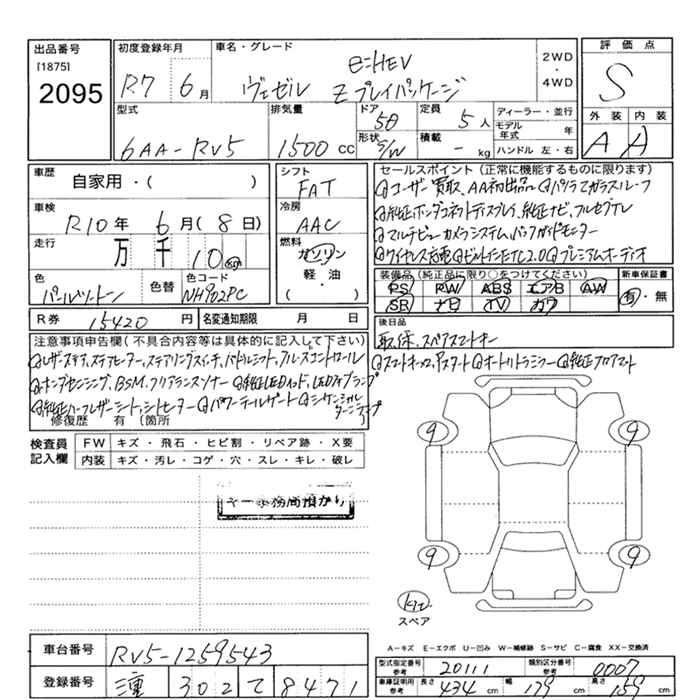 出品番号 初度登録年月 車名・グレード 2WD・4WD 評価点
[1875] e:HEV
2095 R7 6月 ヴェゼル Z プレイパッケージ S
型式 排気量 ドア 5D 定員 5人 ディーラー・並行 外装 内装
モデル年式 年
6AA-RV5 1500cc 形状 S/W 積載 - kg ハンドル 左・右 A A
車歴 自家用・( ) シフト FAT セールスポイント(正常に機能するものに限ります)
ユーザー買取、AA初出品 パノラマガラスルーフ
車検 R10年 6月(8日) 冷房 AAC 純正ホンダコネクトディスプレイ、純正ナビ、フルセグTV
走行 万 千 10 km 燃料 ガソリン 軽・油 ( ) マルチビューカメラシステム、バックガイドモニター
ワイヤレス充電 ビルトインETC2.0 プレミアムオーディオ
色 パールツートン 色替 色コード NH902PC 装備品(純正品に限り○をつけてください) 新車保証書
PS PW ABS エアB AW 有・無
SR ナビ TV カワ
R券 15420円 名変通知期限 月 日 後日品
取、保、スペアスマートキー
注意事項申告欄(不具合内容等は具体的に記入して下さい)
レザーステア、ステアヒーター、ステアリングスイッチ、パドルシフト、クルーズコントロール スマートキー×2、Pスタート オートリトラミラー 純正フロアマット
ホンダセンシング、BSM、クリアランスソナー 純正LEDヘッド、LEDフォグランプ
純正ハーフレザーシート、シートヒーター パワーテールゲート シーケンシャルターンランプ
修復歴 有 (箇所 )
検査員記入欄 FW キズ・飛石・ヒビ割・リペア跡・X要
内装 キズ・汚レ・コゲ・穴・スレ・キレ・破レ
9 9
キー事務局預かり
9 9
キット
スペア
A-キズ E-エクボ U-凹み W-補修跡 S-サビ C-腐食 XX-交換済
車台番号 RV5-1259543 型式指定番号 参考 20111 類別区分番号 参考 0007
登録番号 302 て 8471 車庫証明用 参考 長さ 434 cm 幅 179 cm 高さ 159 cm